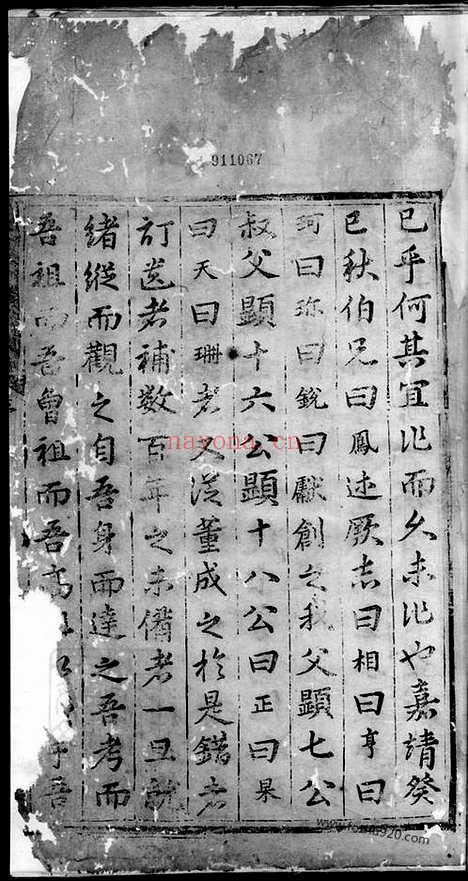 911067
已乎何其宜作而久未作也嘉靖癸
巳秋伯兄曰鳳述厥志曰相曰亨曰
珂曰珎曰銳曰獻創之我父顯七公
叔父顯十六公顯十八公曰正曰杲
曰天曰珊者又從董成之於是錯者
訂遺者補數百年之未備者一旦就
緒縱而觀之自吾身而達之吾考而
吾祖而吾曾祖而吾高
吾
nayona.cn